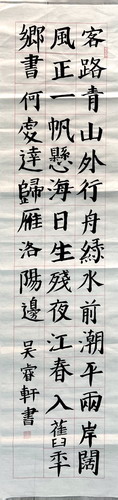 客路青山外行舟綠水前潮平兩岸闊
風正一帆懸海日生殘夜江春入舊年
鄉書何處達歸雁洛陽邊
吴睿軒書